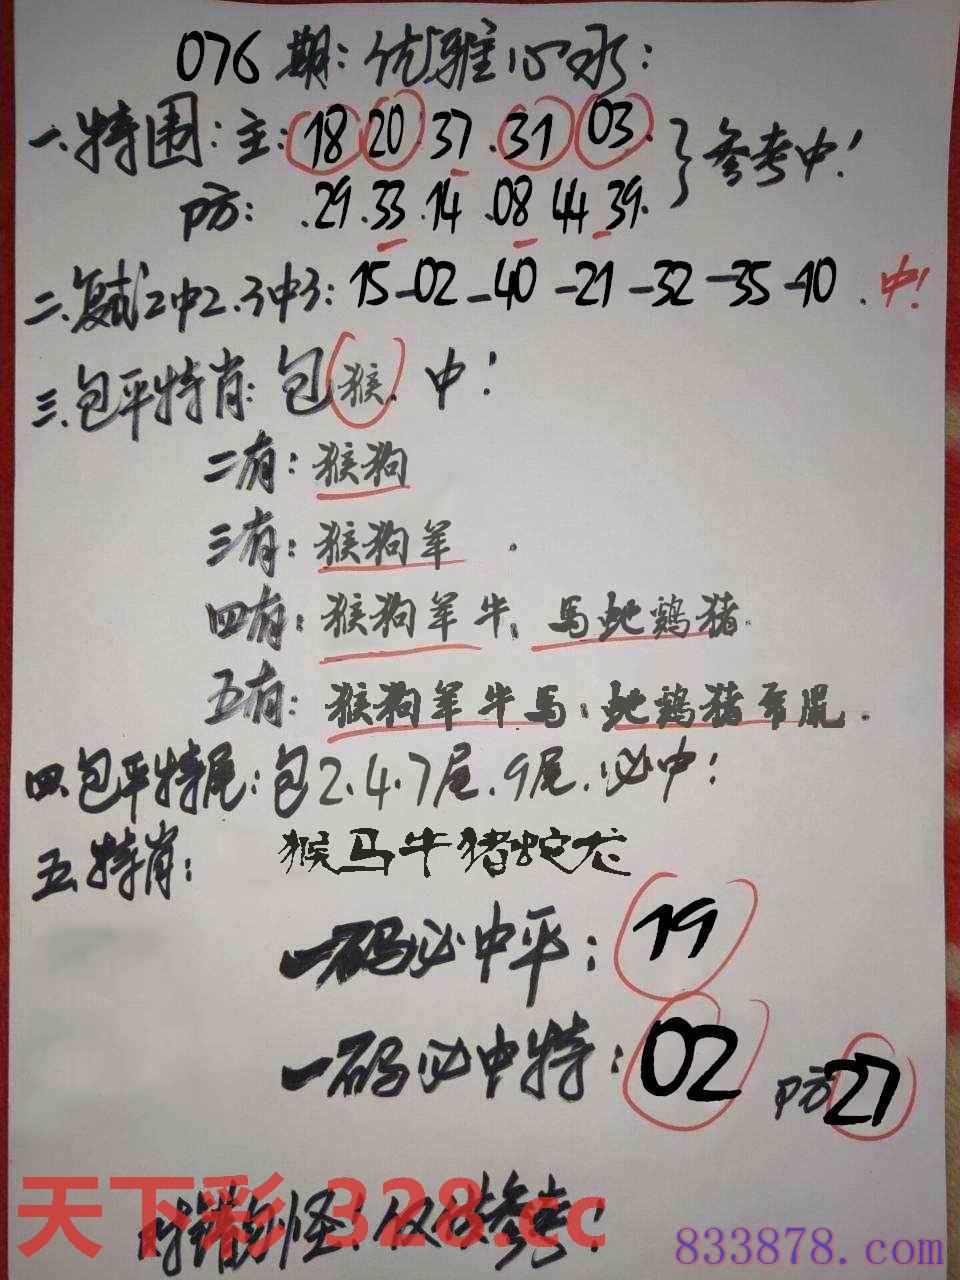 076期:优雅心水:
一.特围:主:18 20 37.31 03.}参考中!
防:.29.33.14.08 44 39.
二.复式2中2.3中3:15-02-40-21-32-35-10.中!
三.包平特肖:包猴.中!
二有:猴狗
三有:猴狗羊.
四有:猴狗羊牛.马蛇鸡猪.
五有:猴狗羊牛马.蛇鸡猪兔鼠.
四.包平特尾:包2.4.7尾.9尾.必中!
五.特肖:猴马牛猪蛇龙
一码必中平:19
一码必中特:02 防27
对错勿怪!仅供参考!
天下彩 328.cc
833878.com